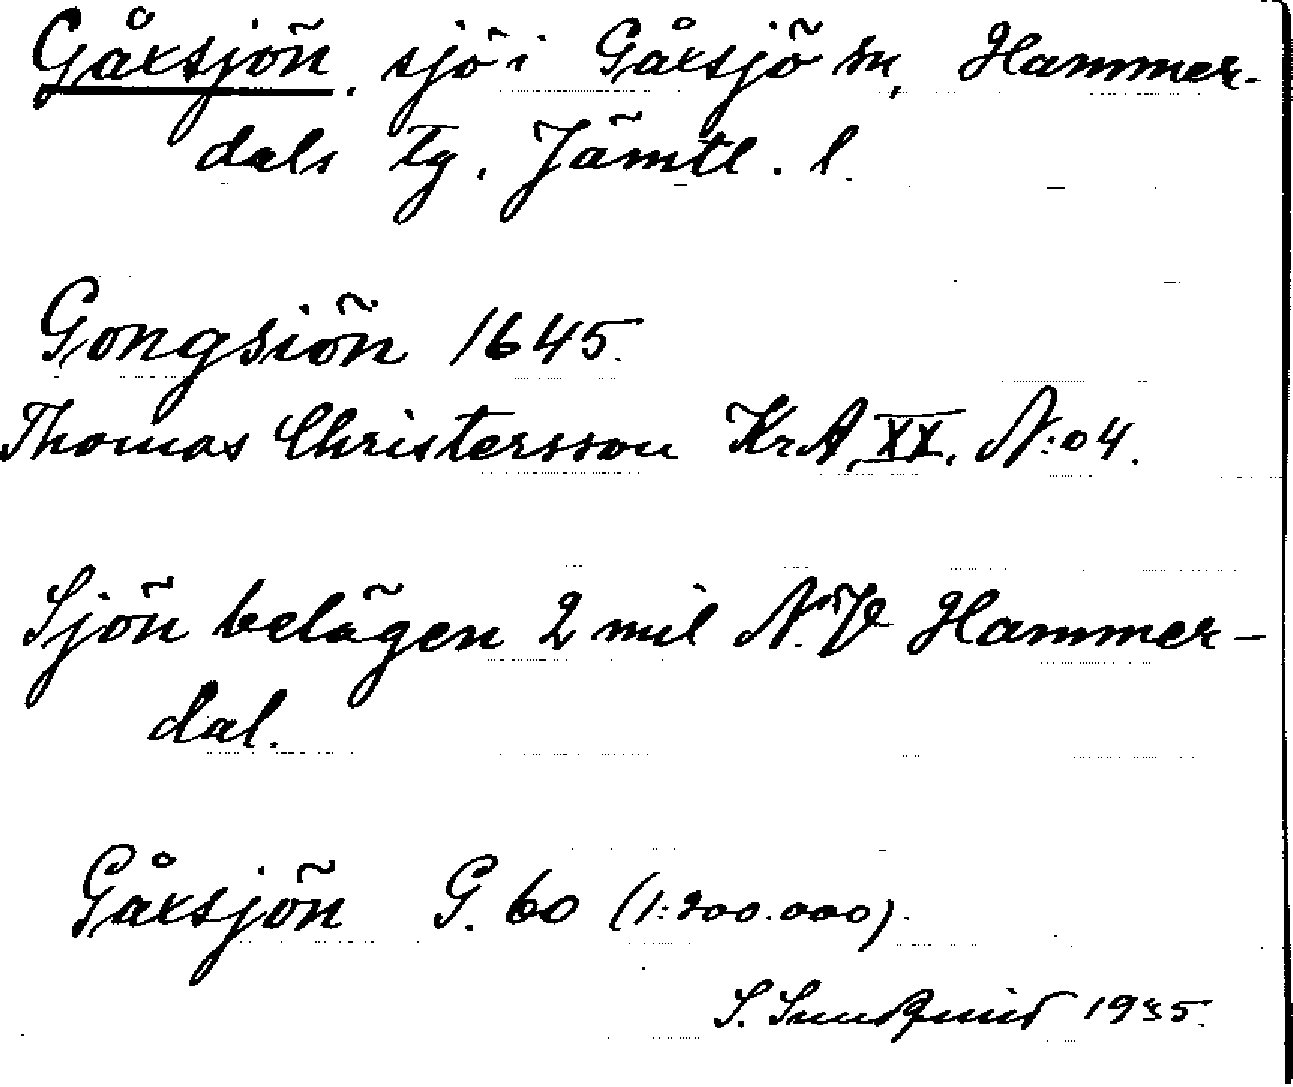 Gåxsjön, sjö i Gåxsjö sn, Hammer-
dals tg. Jämtl. l.
Gongsiön 1645.
Thomas Christersson KrA, XX, N:o 4.
Sjön belägen 2 mil N.V Hammer-
dal.
Gåxsjön G. 60 (1:200.000).
S. Sundquist 1935.